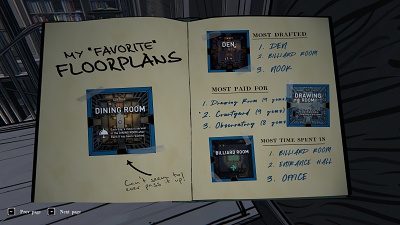 MY "FAVORITE"
FLOORPLANS
DINING ROOM
Can't seem to
ever pass it up!
MOST DRAFTED
DEN
1. DEN
2. BILLIARD ROOM
3. NOOK
MOST PAID FOR
1. Drawing Room (9 gems)
2. Courtyard (9 gems)
3. Observatory (8 gems)
DRAWING ROOM
MOST TIME SPENT IN
BILLIARD ROOM
1. BILLIARD ROOM
2. ENTRANCE HALL
3. OFFICE
Prev page
Next page